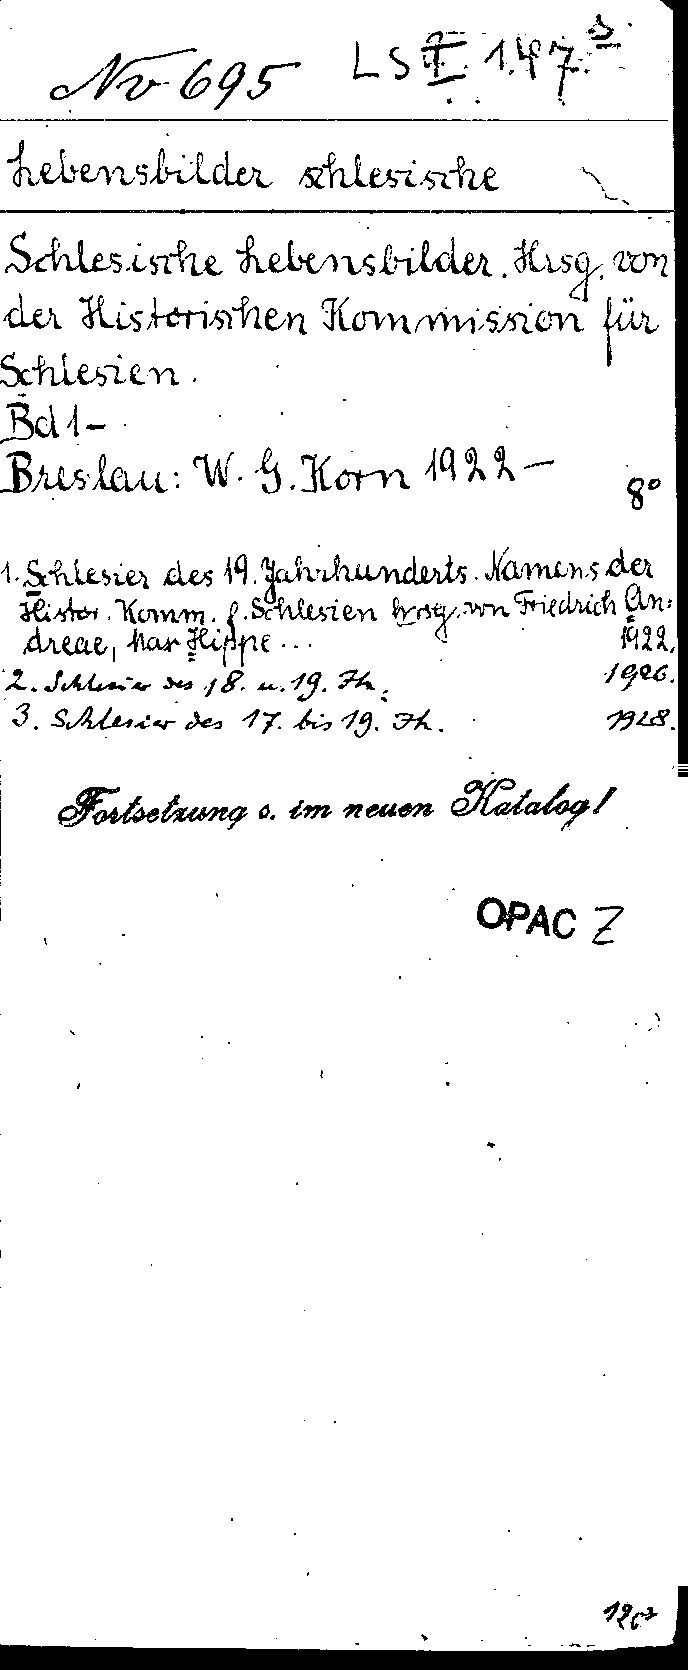 Nv 695 LS I 1.47.
Lebensbilder schlesische
Schlesische Lebensbilder. Hrsg. von
der Historischen Kommission für
Schlesien.
Bd 1-
Breslau: W. G. Korn 1922 -
8°
1. Schlesier des 19. Jahrhunderts. Namens der
Histor. Komm. f. Schlesien hrsg. von Friedrich An=
dreae, Max Hippe... 1922.
2. Schlesier des 18. u. 19. Jh. 1926.
3. Schlesier des 17. bis 19. Jh. 1928.
Fortsetzung s. im neuen Katalog!
OPAC Z